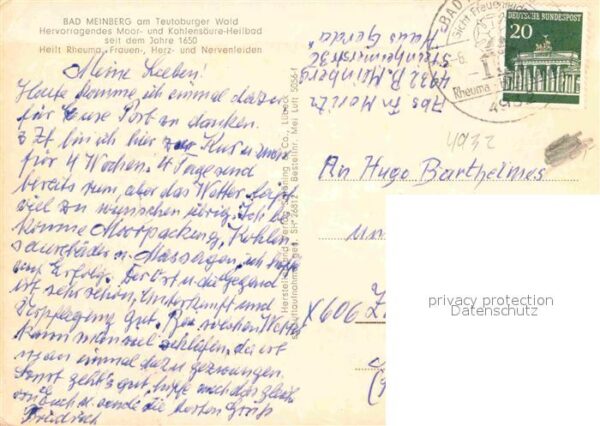 BAD MEINBERG am Teutoburger Wald
Hervorragendes Moor- und Kohlensäure-Heilbad
seit dem Jahre 1650
Heilt Rheuma, Frauen-, Herz- und Nervenleiden
Meine Lieben!
Heute komme ich einmal dazu
für Eure Post zu danken.
Z Zt. bin ich hier zur Kur u zwar
für 4 Wochen. 4 Tage sind
bereits rum, aber das Wetter läßt
viel zu wünschen übrig. Ich be
komme Moorpackung, Kohlen
säurebäder u. Massagen, ich hoffe
auf Erfolg. Der Ort u die Gegend
ist sehr schön, Unterkunft und
Verpflegung gut. Bei Wetter
kann man viel schlafen, da ist
man einmal dazu gezwungen.
Sonst geht's gut, hoffe auch das gleiche
von Euch u. sende die besten Grüße
Friedrich
Abs. Fr. Moritz
4932 B. Meinberg
Steinheimerstr.
Haus Gerda
BAD
Rheuma
DEUTSCHE BUNDESPOST
20
4932
An Hugo Barthelmes
X 606 Z
privacy protection
Datenschutz